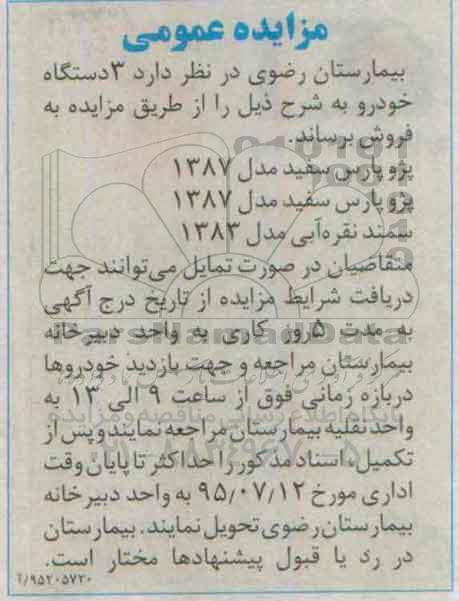 مزایده عمومی
بیمارستان رضوی در نظر دارد ۳دستگاه
خودرو به شرح ذیل را از طریق مزایده به
فروش برساند.
پژو پارس سفید مدل ۱۳۸۷
پژو پارس سفید مدل ۱۳۸۷
سمند نقره‌آبی مدل ۱۳۸۳
متقاضیان در صورت تمایل می‌توانند جهت
دریافت شرایط مزایده از تاریخ درج آگهی
به مدت ۵روز کاری به واحد دبیرخانه
بیمارستان مراجعه و جهت بازدید خودروها
دربازه زمانی فوق از ساعت ۹ الی ۱۳ به
واحد نقلیه بیمارستان مراجعه نمایند و پس از
تکمیل، اسناد مذکور را حداکثر تا پایان وقت
اداری مورخ ۹۵/۰۷/۱۲ به واحد دبیرخانه
بیمارستان رضوی تحویل نمایند. بیمارستان
در رد یا قبول پیشنهادها مختار است.
۹۵۲۰۵۷۲۰/آ